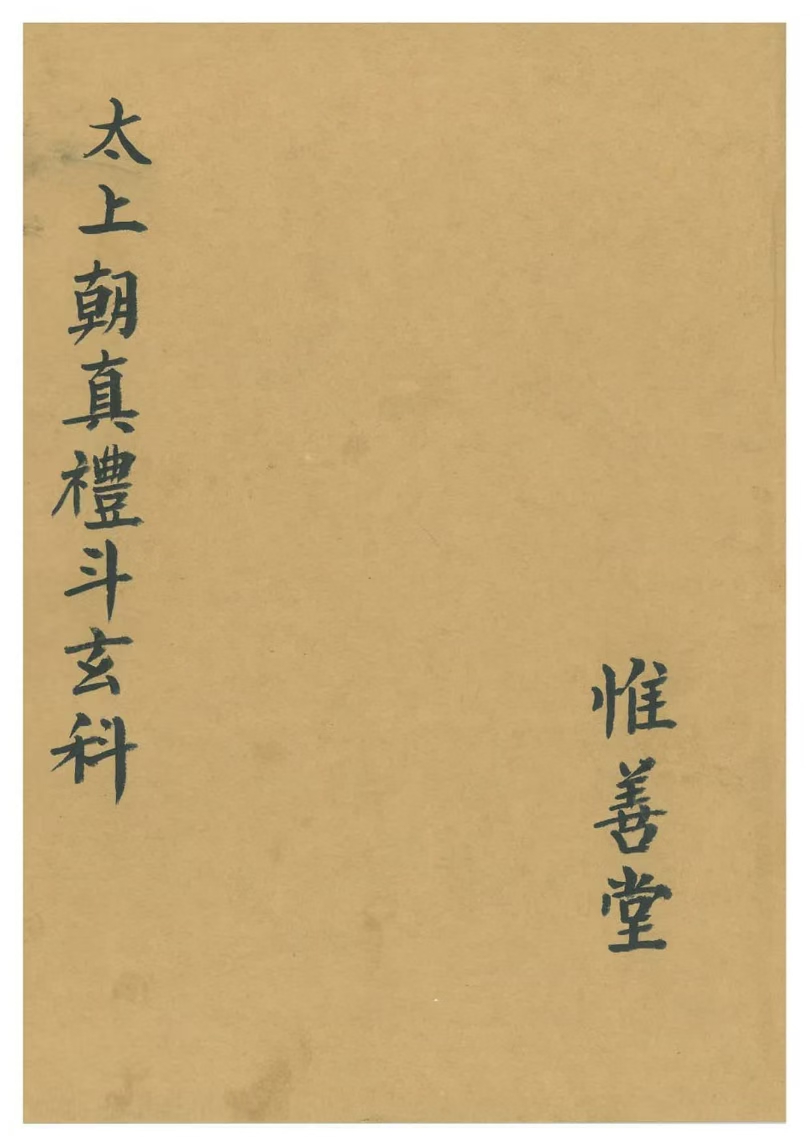 太上朝真禮斗玄科
惟善堂